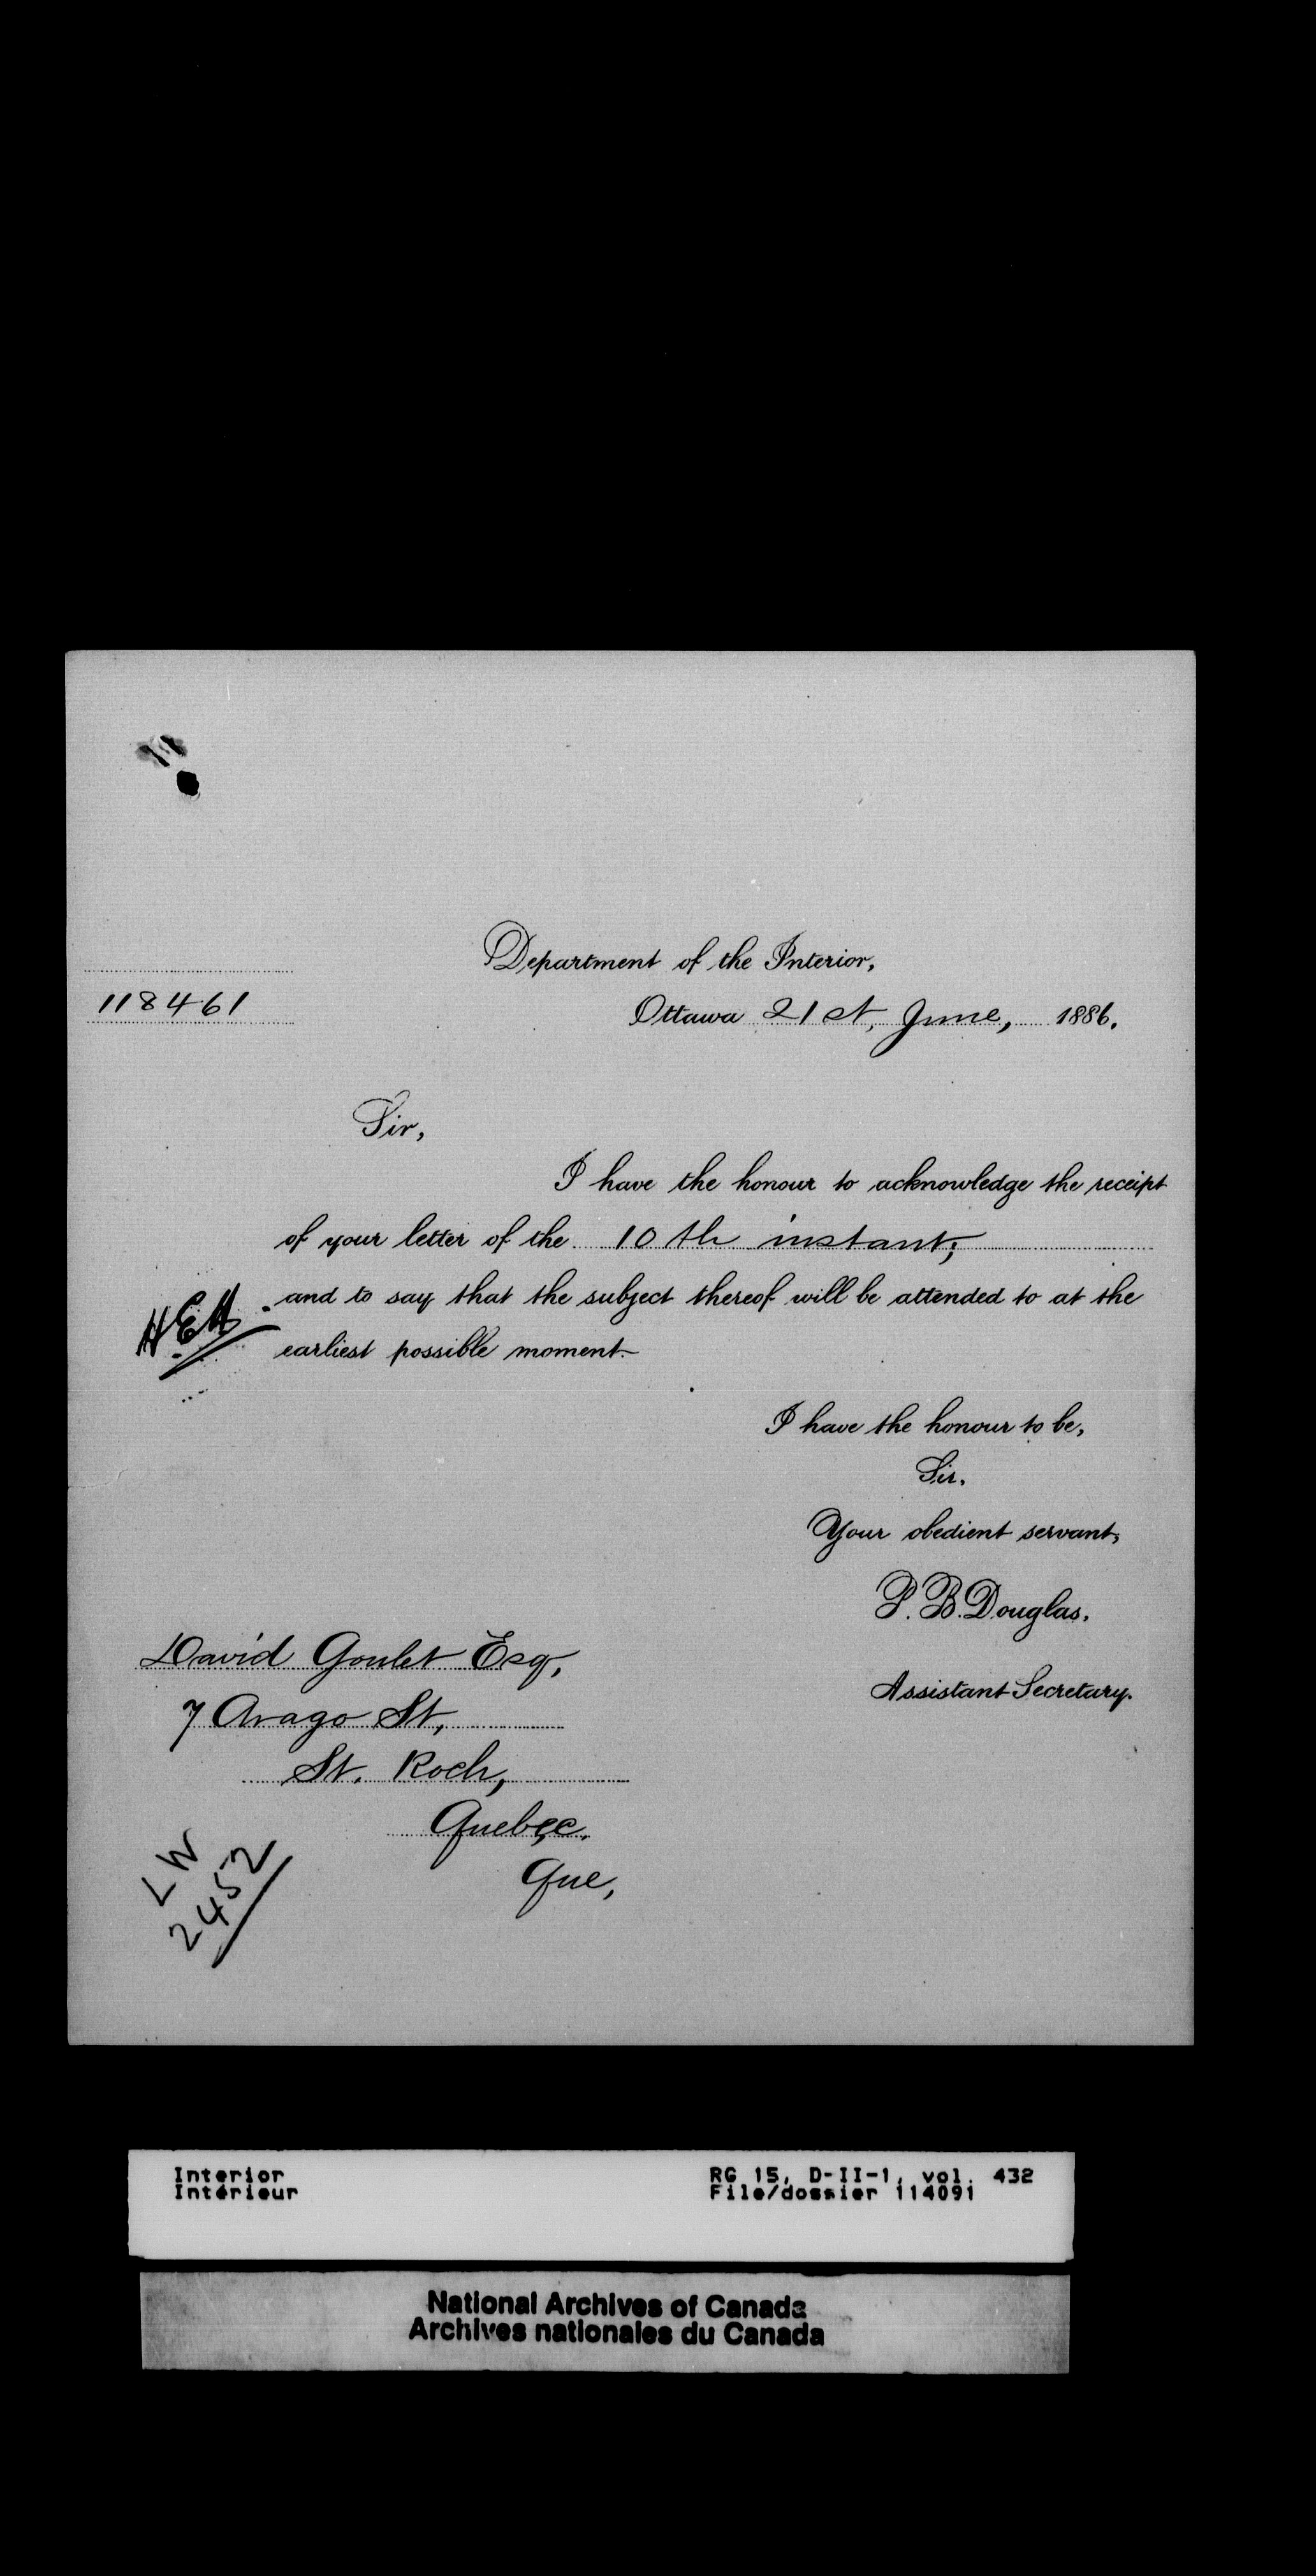 Department of the Interior,
118461
Ottawa 21st, June, 1886.
Sir,
I have the honour to acknowledge the receipt
of your letter of the 10th instant,
and to say that the subject thereof will be attended to at the
earliest possible moment.
HEH
I have the honour to be,
Sir,
Your obedient servant,
P. B. Douglas,
Assistant Secretary.
David Goulet Esq,
7 Arago St,
St. Roch,
Quebec.
Que,
LW
2452
Interior
Intérieur
RG 15, D-II-1, vol. 432
File/dossier 114091
National Archives of Canada
Archives nationales du Canada